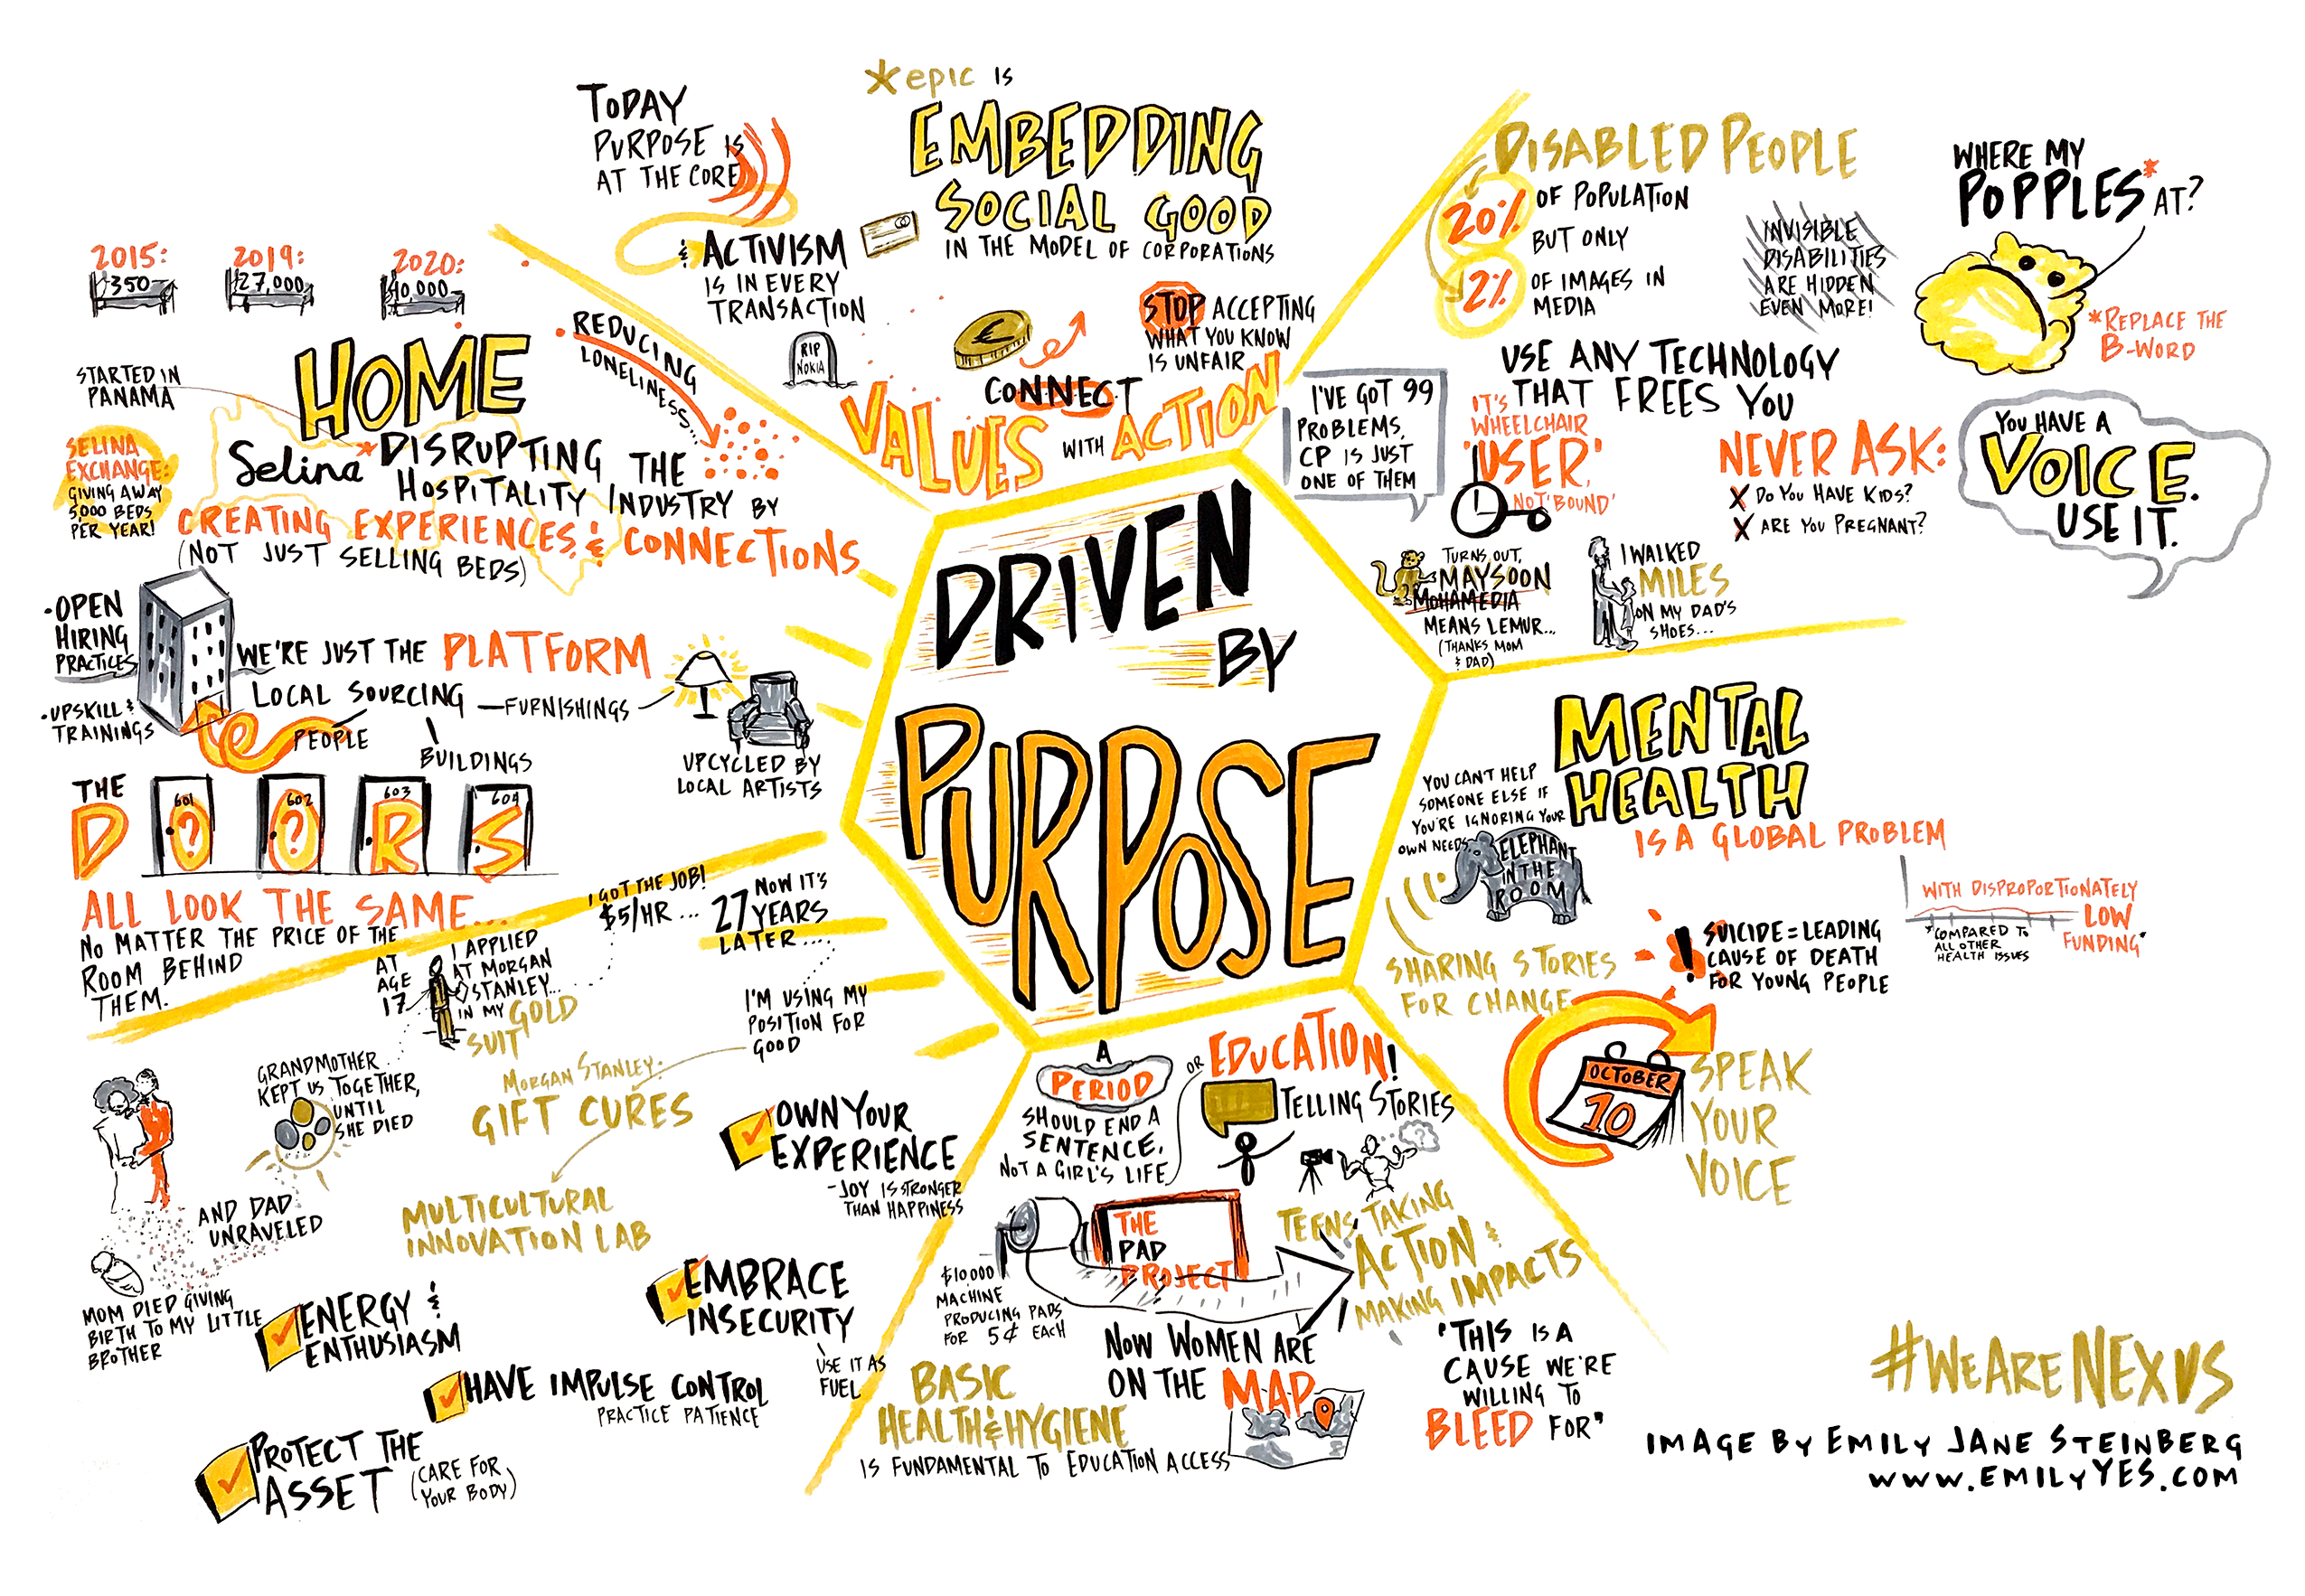 DRIVEN
BY
PURPOSE
TODAY
PURPOSE IS
AT THE CORE
& ACTIVISM
IS IN EVERY
TRANSACTION
*epic IS
EMBEDDING
SOCIAL GOOD
IN THE MODEL OF CORPORATIONS
RIP
NOKIA
€
CONNECT
VALUES WITH ACTION
STOP ACCEPTING
WHAT YOU KNOW
IS UNFAIR
DISABLED PEOPLE
20% OF POPULATION
BUT ONLY
2% OF IMAGES IN
MEDIA
INVISIBLE
DISABILITIES
ARE HIDDEN
EVEN MORE!
WHERE MY
POPPLES* AT?
*REPLACE THE
B-WORD
USE ANY TECHNOLOGY
THAT FREES YOU
I'VE GOT 99
PROBLEMS,
CP IS JUST
ONE OF THEM
IT'S
WHEELCHAIR
'USER,'
NOT 'BOUND'
NEVER ASK:
X DO YOU HAVE KIDS?
X ARE YOU PREGNANT?
YOU HAVE A
VOICE.
USE IT.
TURNS OUT,
MAYSOON
MOHAMEDIA
MEANS LEMUR...
(THANKS MOM
& DAD)
I WALKED
MILES
ON MY DAD'S
SHOES...
MENTAL
HEALTH
IS A GLOBAL PROBLEM
YOU CAN'T HELP
SOMEONE ELSE IF
YOU'RE IGNORING YOUR
OWN NEEDS
ELEPHANT
IN THE
ROOM
WITH DISPROPORTIONATELY
LOW
FUNDING*
*COMPARED TO
ALL OTHER
HEALTH ISSUES
SHARING STORIES
FOR CHANGE
! SUICIDE = LEADING
CAUSE OF DEATH
FOR YOUNG PEOPLE
OCTOBER
10
SPEAK
YOUR
VOICE
A
PERIOD
SHOULD END A
SENTENCE,
NOT A GIRL'S LIFE
OR EDUCATION!
TELLING STORIES
?
THE
PAD
PROJECT
$10,000
MACHINE
PRODUCING PADS
FOR 5¢ EACH
TEENS TAKING
ACTION &
MAKING IMPACTS
NOW WOMEN ARE
ON THE MAP
BASIC
HEALTH & HYGIENE
IS FUNDAMENTAL TO EDUCATION ACCESS
"THIS IS A
CAUSE WE'RE
WILLING TO
BLEED FOR"
2015:
350
2019:
27,000
2020:
40,000
HOME
STARTED IN
PANAMA
REDUCING
LONELINESS...
SELINA
EXCHANGE:
GIVING AWAY
5,000 BEDS
PER YEAR!
Selina* DISRUPTING THE
HOSPITALITY INDUSTRY BY
CREATING EXPERIENCES & CONNECTIONS
(NOT JUST SELLING BEDS)
• OPEN
HIRING
PRACTICES
• UPSKILL &
TRAININGS
WE'RE JUST THE PLATFORM
LOCAL SOURCING — FURNISHINGS
PEOPLE
BUILDINGS
UPCYCLED BY
LOCAL ARTISTS
THE
DOORS
601
602
603
604
?
?
ALL LOOK THE SAME...
NO MATTER THE PRICE OF THE
ROOM BEHIND
THEM.
AT
AGE
17
I APPLIED
AT MORGAN
STANLEY...
IN MY GOLD
SUIT
I GOT THE JOB!
$5/HR...
NOW IT'S
27 YEARS
LATER....
I'M USING MY
POSITION FOR
GOOD
MORGAN STANLEY:
GIFT CURES
MULTICULTURAL
INNOVATION LAB
GRANDMOTHER
KEPT US TOGETHER,
UNTIL
SHE DIED
AND DAD
UNRAVELED
MOM DIED GIVING
BIRTH TO MY LITTLE
BROTHER
OWN YOUR
EXPERIENCE
- JOY IS STRONGER
THAN HAPPINESS
EMBRACE
INSECURITY
USE IT AS
FUEL
ENERGY &
ENTHUSIASM
HAVE IMPULSE CONTROL
PRACTICE PATIENCE
PROTECT THE
ASSET (CARE FOR
YOUR BODY)
#WEARENEXUS
IMAGE BY EMILY JANE STEINBERG
WWW.EMILYYES.COM